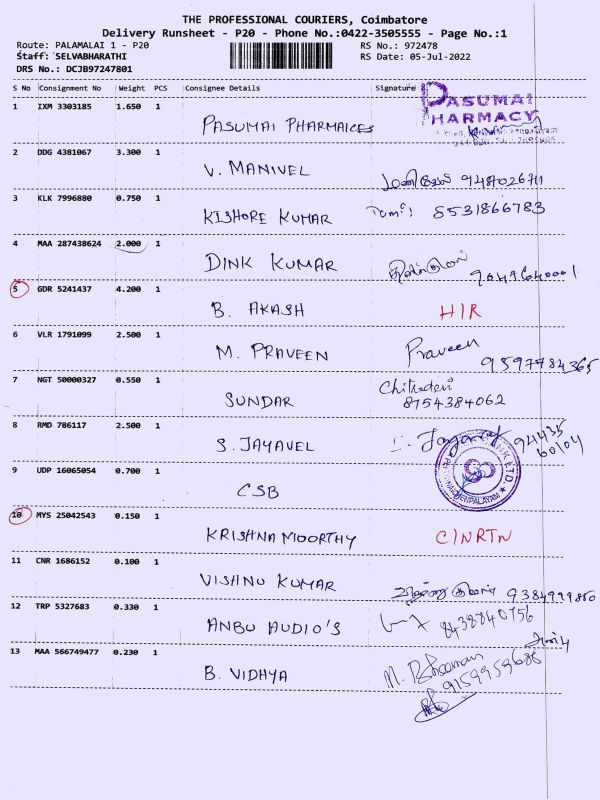 THE PROFESSIONAL COURIERS, Coimbatore
Delivery Runsheet - P20 - Phone No.:0422-3505555 - Page No.:1
Route: PALAMALAI 1 - P20 RS No.: 972478
Staff: SELVABHARATHI RS Date: 05-Jul-2022
DRS No.: DCJB97247801
S No Consignment No Weight PCS Consignee Details Signature
1 IXM 3303185 1.650 1
PASUMAI PHARMAICES PASUMAI PHARMACY
2 DDG 4381067 3.300 1
V. MANIVEL 9487026711
3 KLK 7996880 0.750 1
KISHORE KUMAR 8531866783
4 MAA 287438624 2.000 1
DINK KUMAR
5 GDR 5241437 4.200 1
B. AKASH HIR
6 VLR 1791099 2.500 1
M. PRAVEEN Praveen
9597784365
7 NGT 50000327 0.550 1
SUNDAR 8754384062
8 RMD 786117 2.500 1
S. JAYAVEL 94435
60104
9 UDP 16065054 0.700 1
CSB
10 MYS 25042543 0.150 1
KRISHNA MOORTHY CINRTN
11 CNR 1686152 0.100 1
VISHNU KUMAR
12 TRP 5327683 0.330 1
ANBU AUDIO'S 8438840756
13 MAA 566749477 0.230 1
B. VIDHYA 9159959686